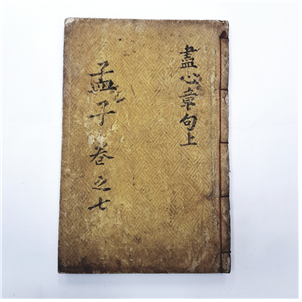 盡心章句上
孟子卷之七